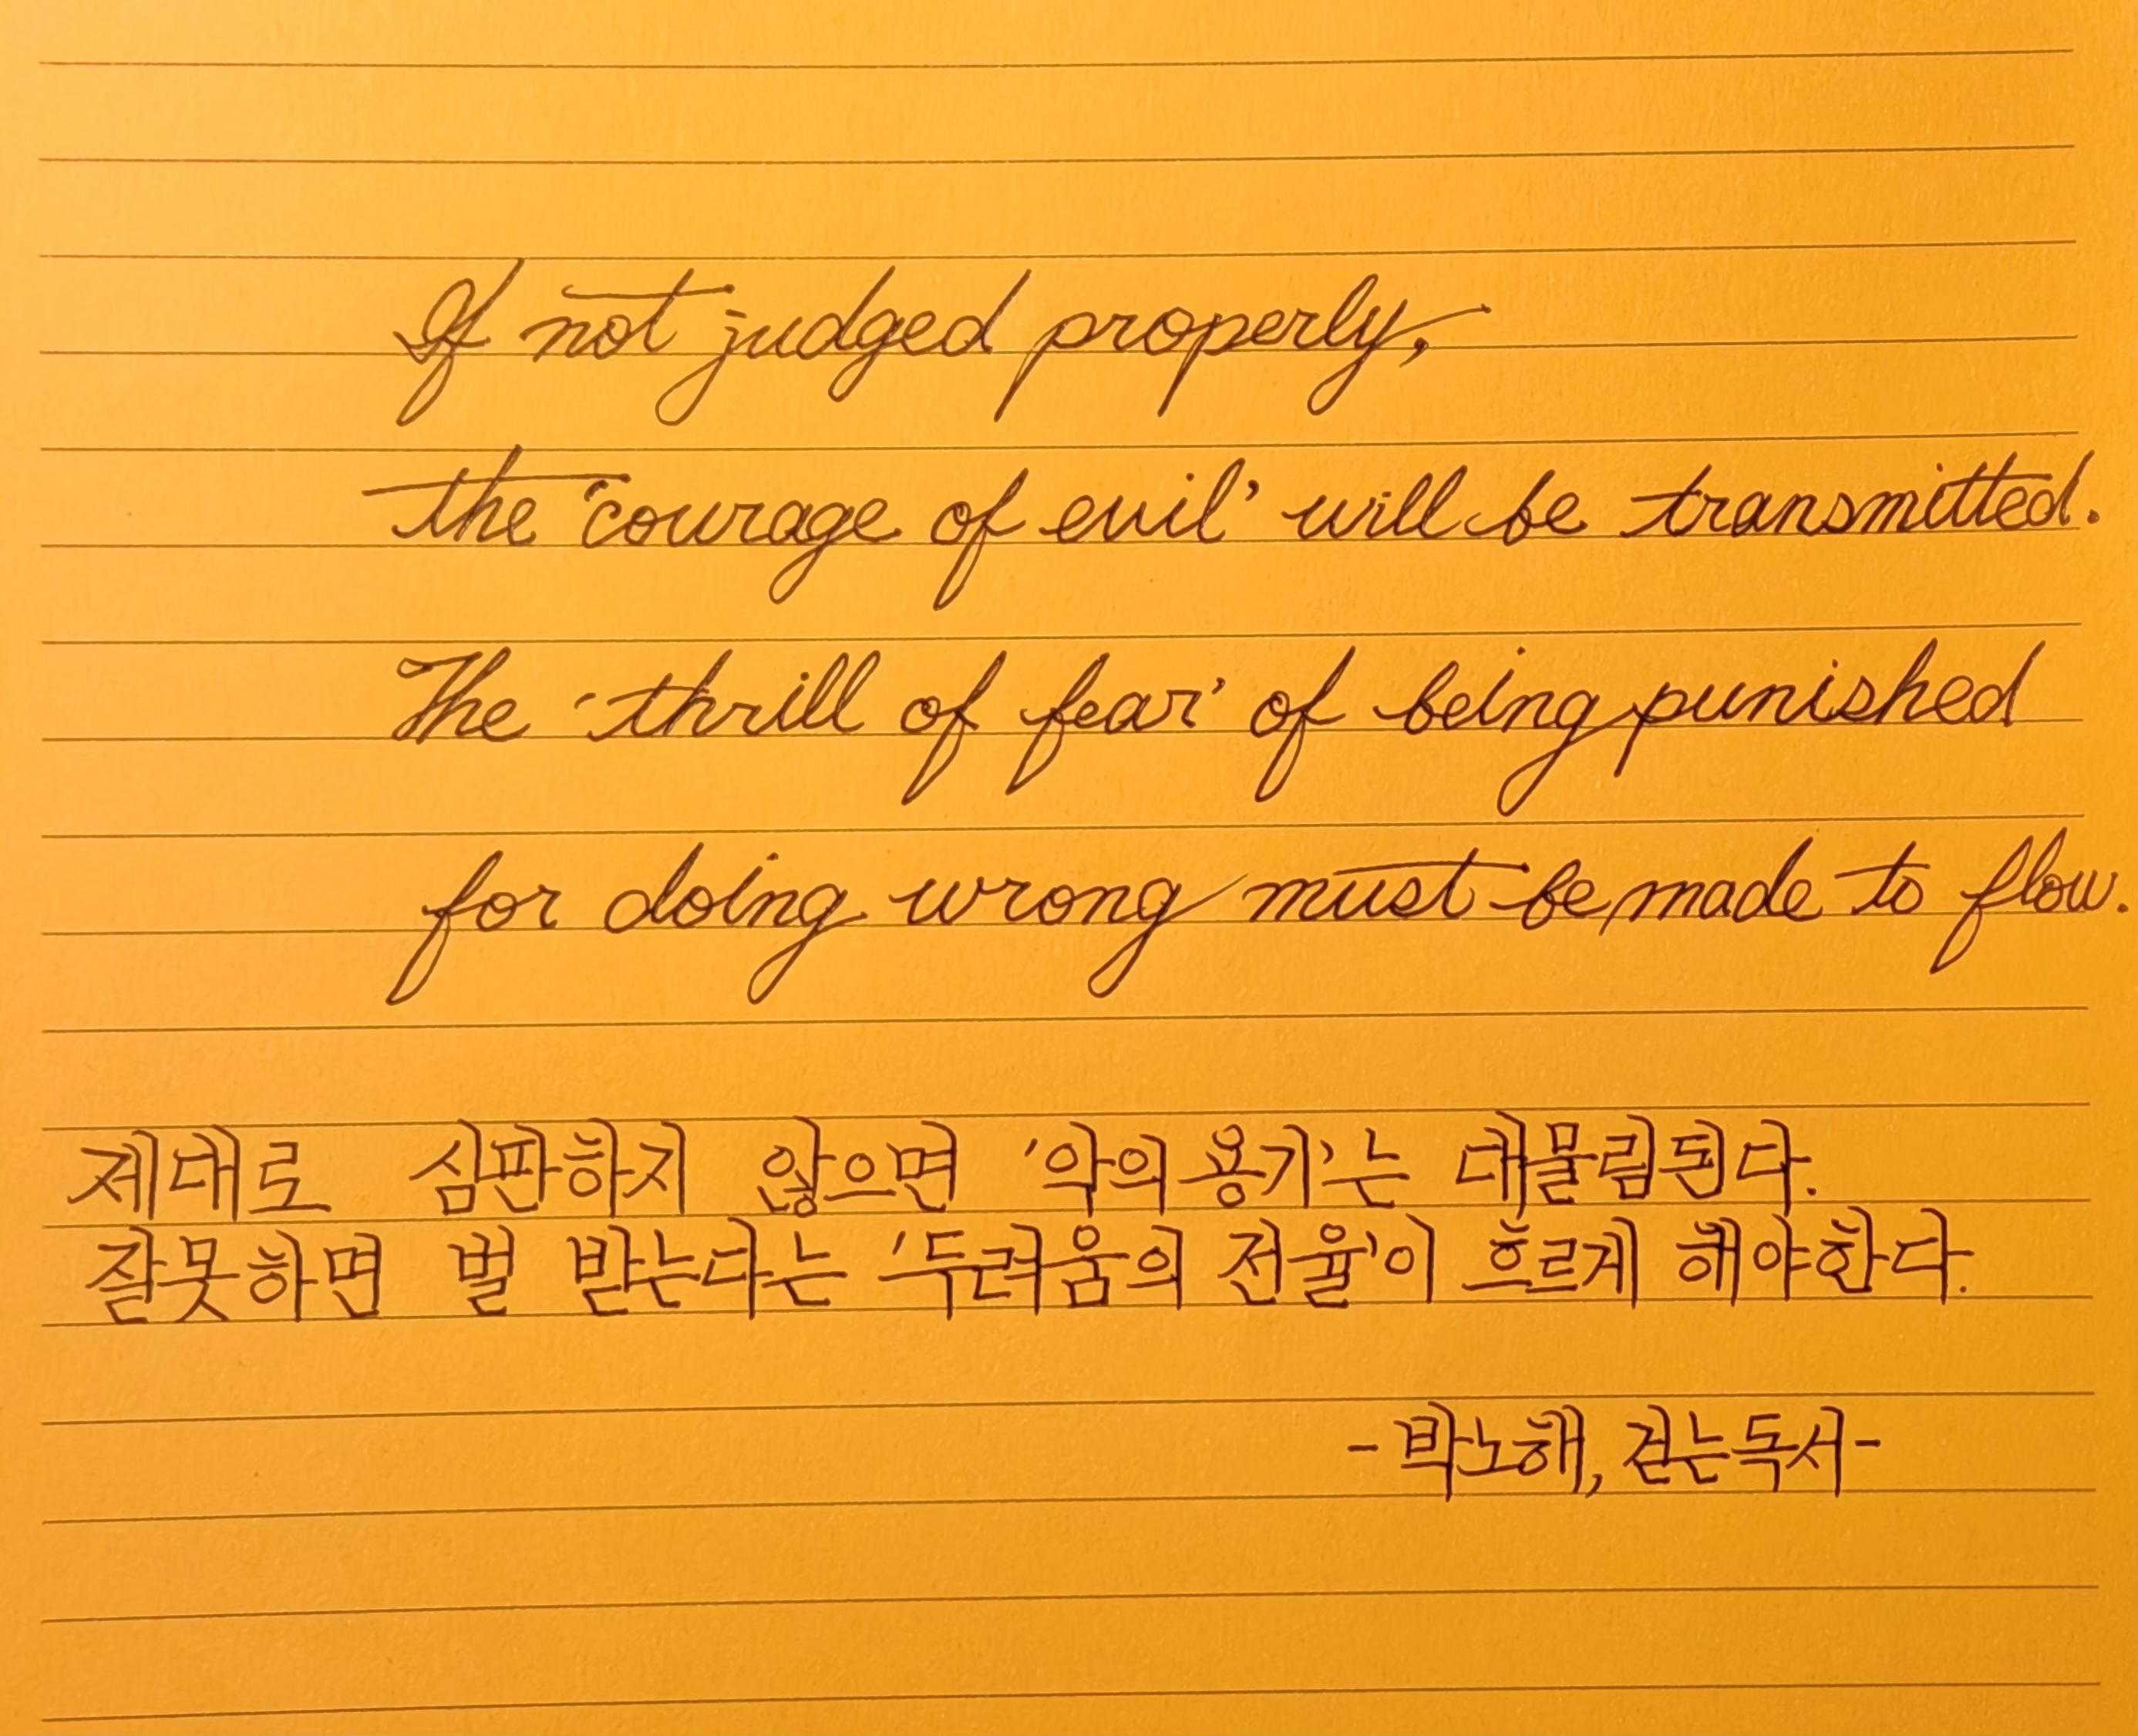 If not judged properly,
the 'courage of evil' will be transmitted.
The 'thrill of fear' of being punished
for doing wrong must be made to flow.
제대로 심판하지 않으면 '악의 용기'는 대물림된다.
잘못하면 벌 받는다는 '두려움의 전율'이 흐르게 해야한다.
-박노해, 걷는독서-